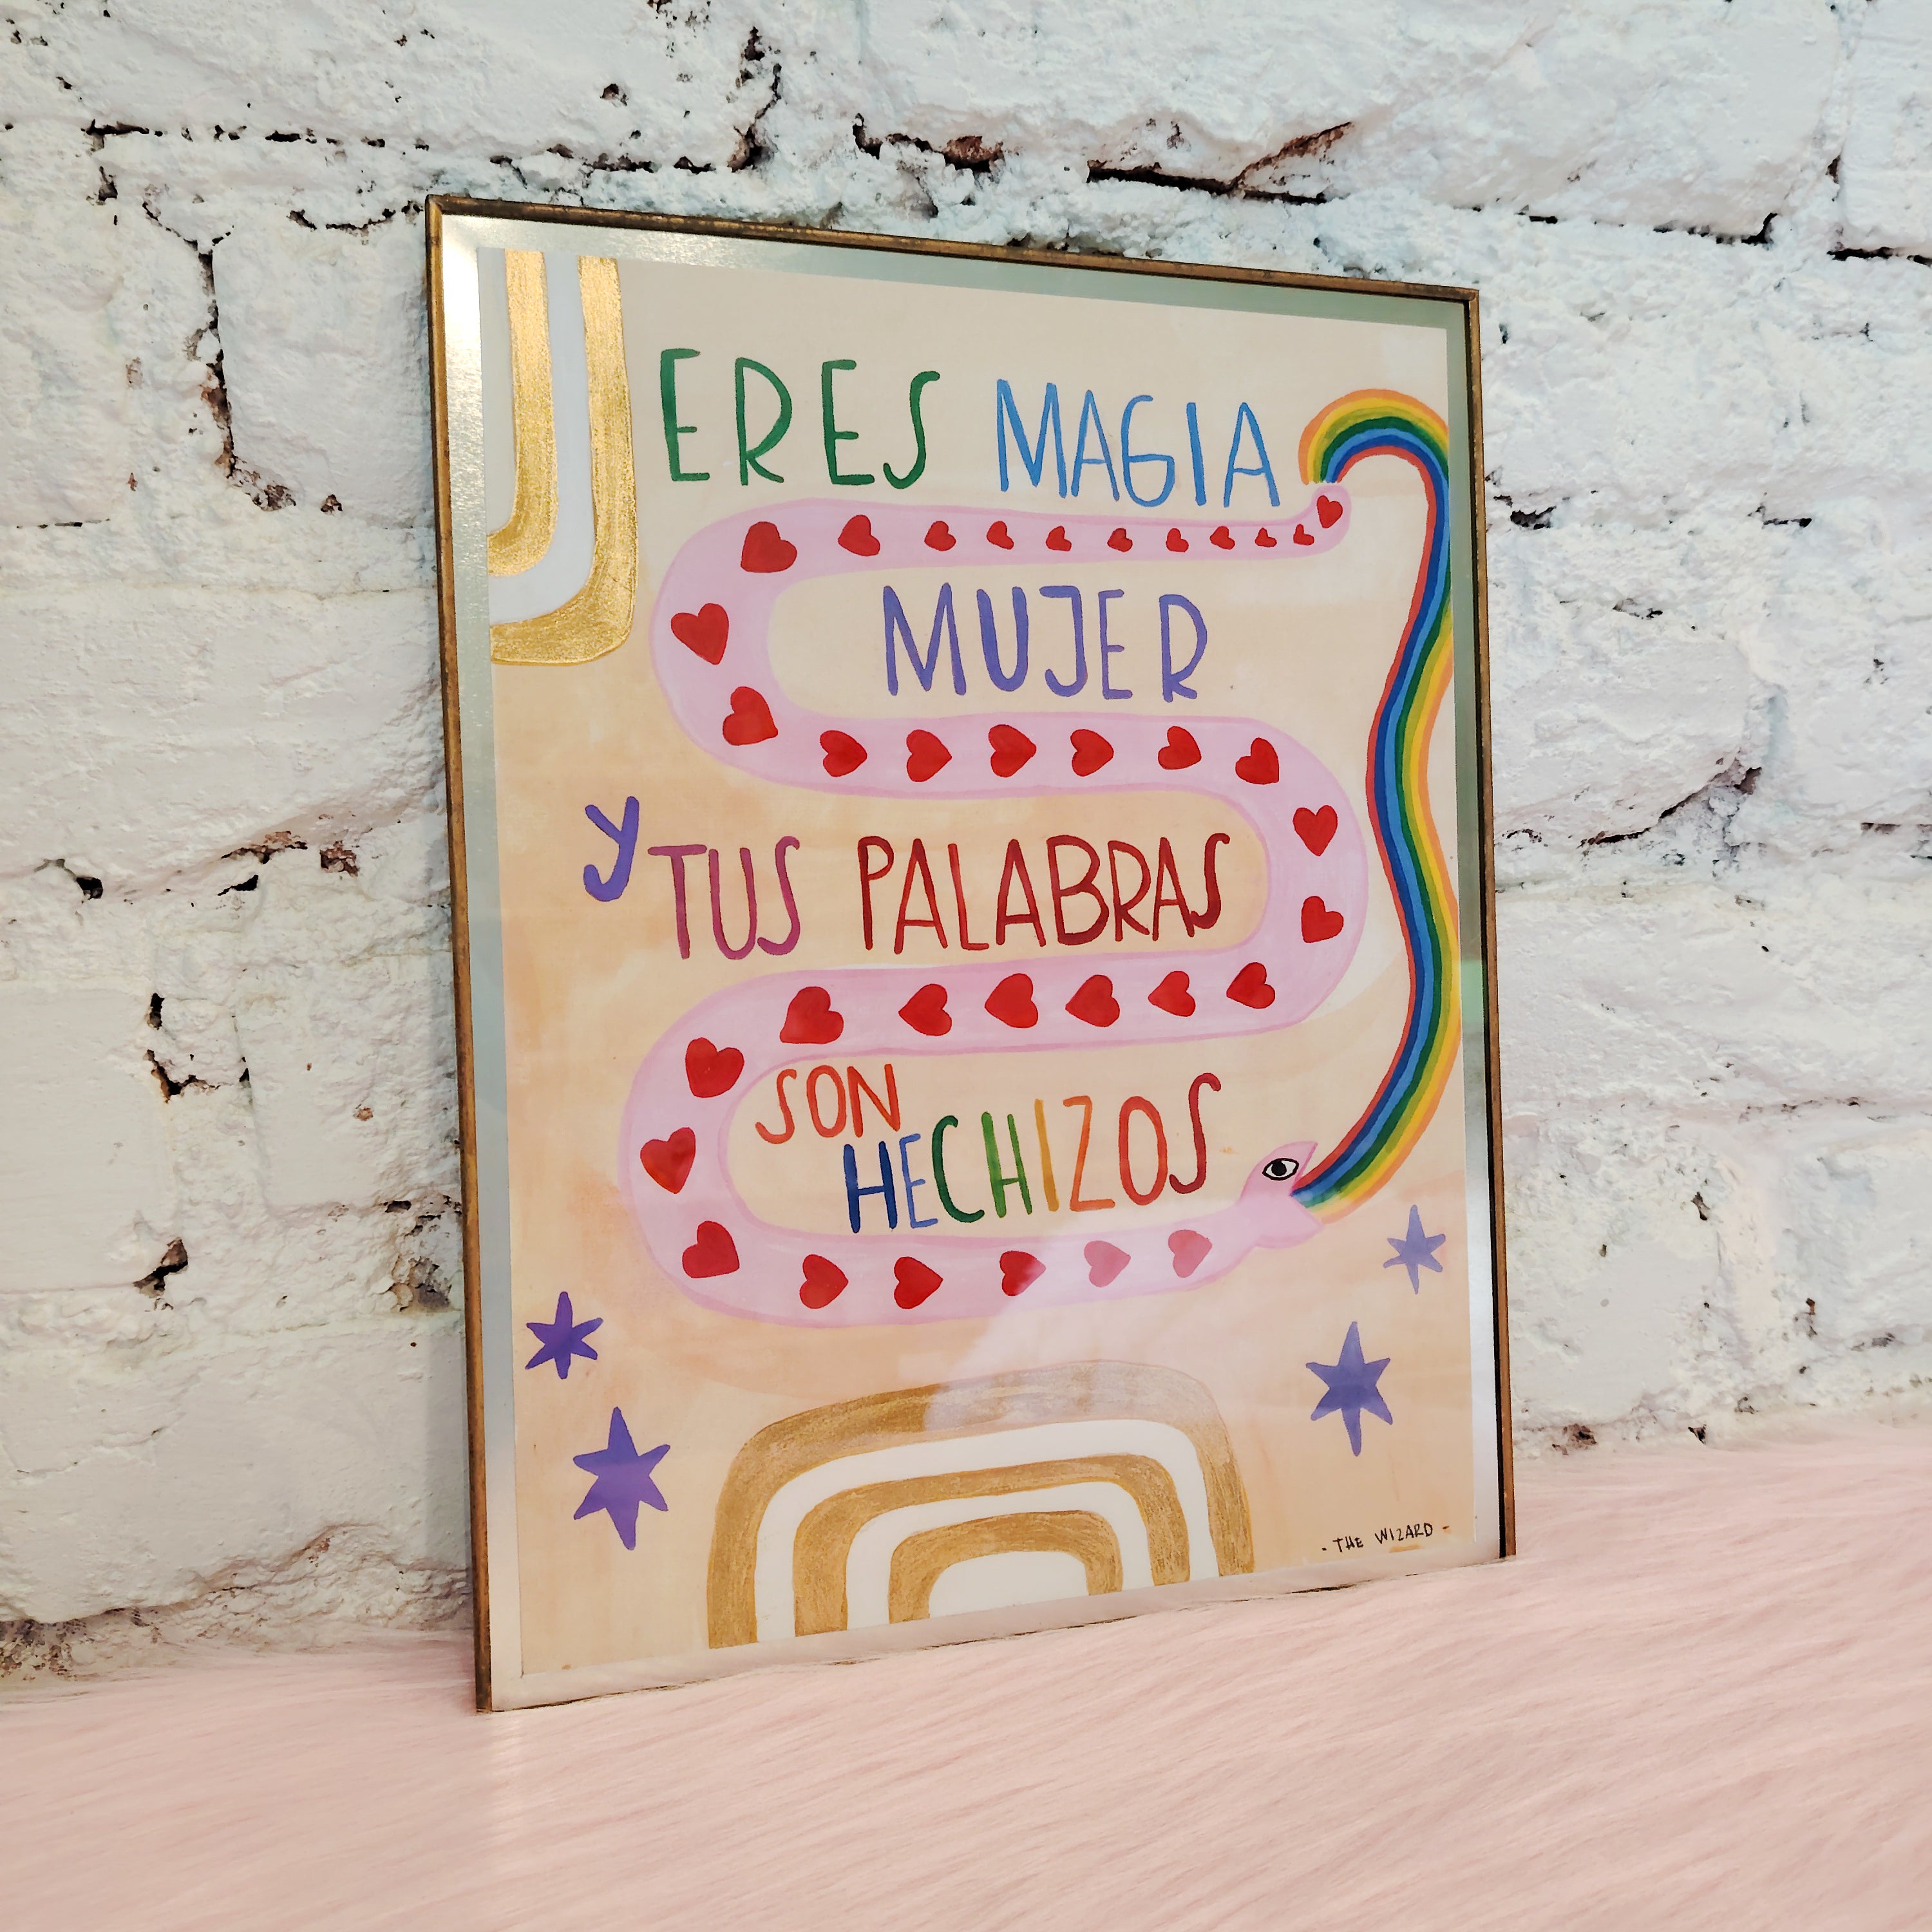 ERES MAGIA
MUJER
y TUS PALABRAS
SON
HECHIZOS
- THE WIZARD -